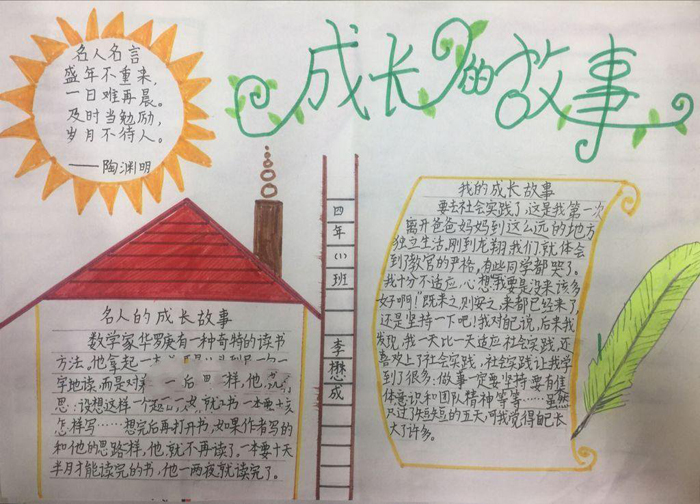 成长的故事
名人名言
盛年不重来,
一日难再晨。
及时当勉励,
岁月不待人。
——陶渊明
四年(1)班
李懋成
名人的成长故事
数学家华罗庚有一种奇特的读书
方法,他拿起一本
字地读,而是对 一后 样,他
思:设想这样一个 就 书一本要十
怎样写……想完后再打开书,如果作者写的
和他的思路样,他就不再读了。一本要十天
半月才能读完的书,他一两夜就读完了。
我的成长故事
要去社会实践了,这是我第一次
离开爸爸妈妈到这么远的地方
独立生活,刚到龙翔我们就体会
到了教官的严格,有些同学都哭了。
我十分不适应,心想我要是没来该多
好啊!既来之则安之,来都已经来了,
还是坚持一下吧!我对自己说,后来我
发现,我一天比一天适应社会实践,还
喜欢上了社会实践,社会实践让我学
到了很多:做事一定要坚持,要有集
体意识和团队精神等等……虽然
只过了短短的五天,可我觉得自己长
大了许多。